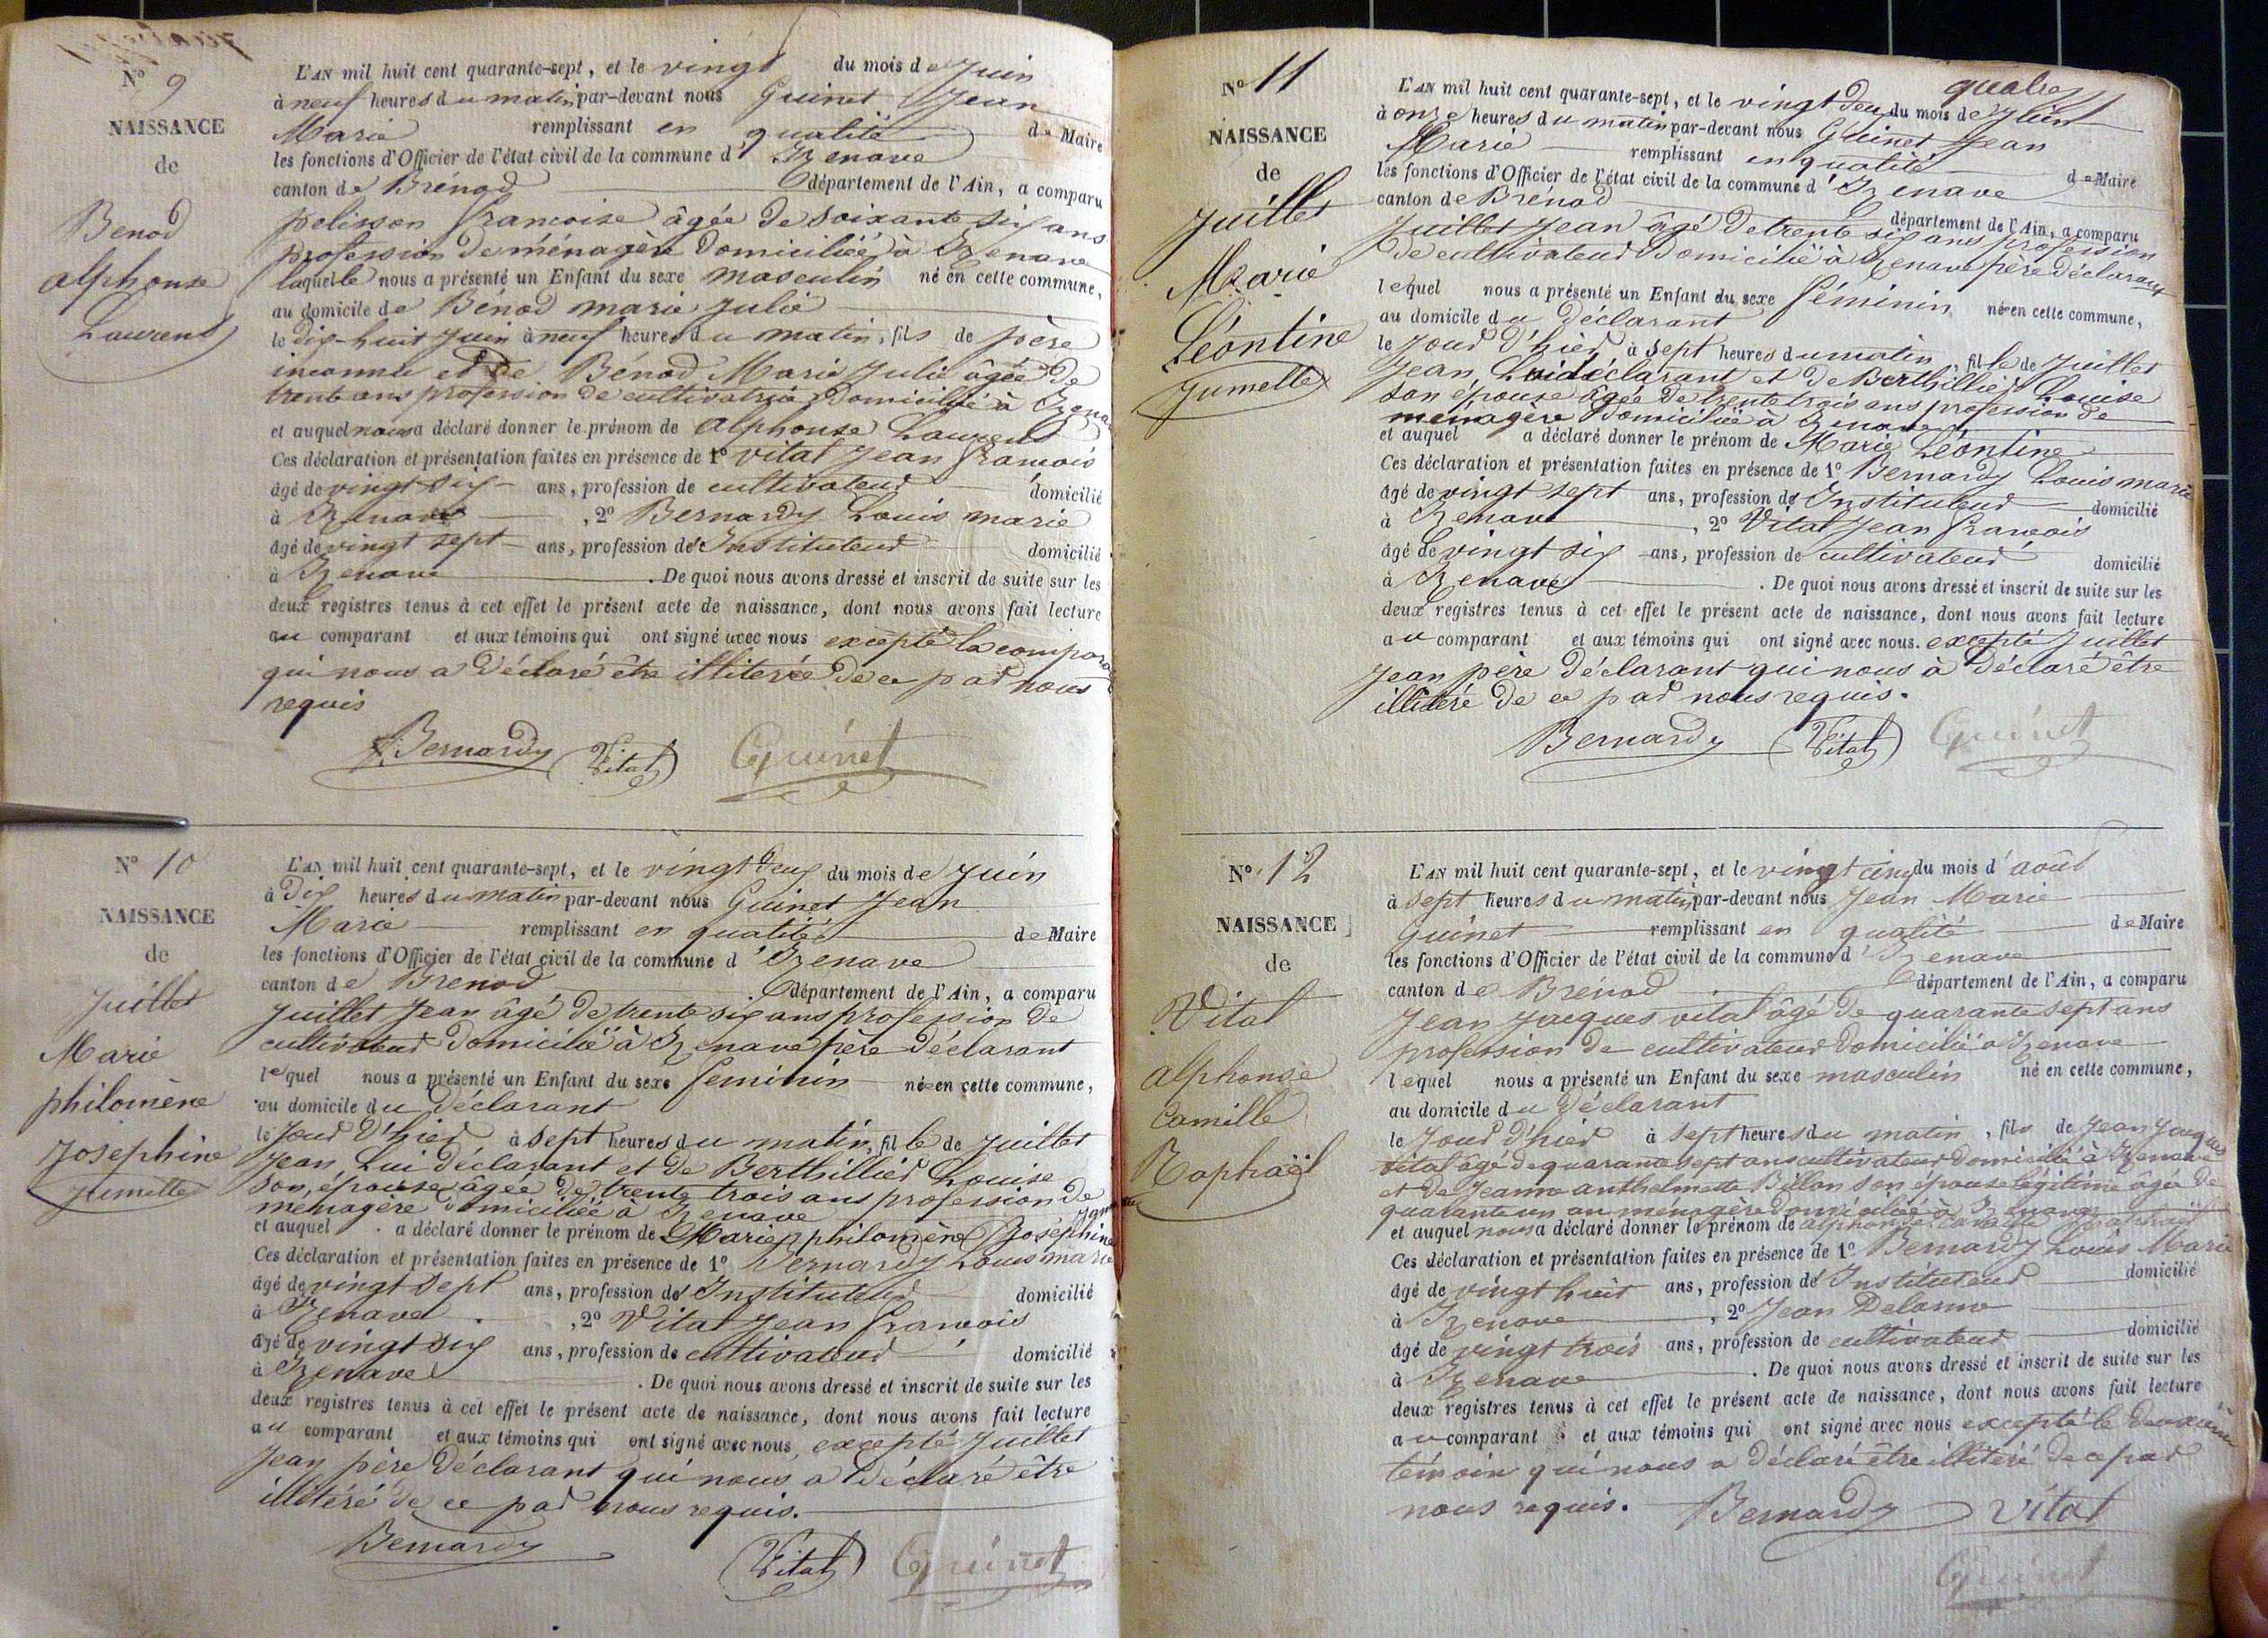 N° 9
NAISSANCE
de
Benod
alphonse
Laurent
L'AN mil huit cent quarante-sept, et le vingt du mois de Juin
à neuf heures du matin par-devant nous Guinet Jean
Marie remplissant en qualité de Maire
les fonctions d'Officier de l'état civil de la commune d'Izenave
canton de Brénod département de l'Ain, a comparu
pelisson francoise âgée de soixante six ans
profession de ménagère domiciliée à Izenave
laquelle nous a présenté un Enfant du sexe masculin né en cette commune,
au domicile de Bénod marie Julie
le dix-huit Juin à neuf heures du matin, fils de père
inconnu et de Bénod Marie Julie âgée de
trente ans profession de cultivatrice domiciliée à Izena
et auquel nous a déclaré donner le prénom de alphonse Laurent
Ces déclaration et présentation faites en présence de 1° vital Jean francois
âgé de vingt six ans, profession de cultivateur domicilié
à Izenave, 2° Bernardy Louis marie
âgé de vingt sept ans, profession de Instituteur domicilié
à Izenave. De quoi nous avons dressé et inscrit de suite sur les
deux registres tenus à cet effet le présent acte de naissance, dont nous avons fait lecture
au comparant et aux témoins qui ont signé avec nous excepté la compara
qui nous a déclaré être illiterée de ce par nous
requis
Bernardy Vital Guinet
N° 10
NAISSANCE
de
Juillet
Marie
philomène
Josephine
Jumelle
L'AN mil huit cent quarante-sept, et le vingt deux du mois de Juin
à dix heures du matin par-devant nous Guinet Jean
Marie remplissant en qualité de Maire
les fonctions d'Officier de l'état civil de la commune d'Izenave
canton de Brenod département de l'Ain, a comparu
Juillet Jean âgé de trente six ans profession de
cultivateur domicilié à Izenave père déclarant
lequel nous a présenté un Enfant du sexe feminin née en cette commune,
au domicile du déclarant
le Jour d'hier à sept heures du matin, fille de Juillet
Jean, Lui déclarant et de Berthillier Louise
son, épouse âgée de trente trois ans profession de
menagère domiciliée à Izenave
et auquel a déclaré donner le prénom de Marie philomène Joséphine
Ces déclaration et présentation faites en présence de 1° Bernardy Louis marie
âgé de vingt sept ans, profession de Instituteur domicilié
à Izenave, 2° Vital Jean francois
âgé de vingt six ans, profession de cultivateur domicilié
à Izenave. De quoi nous avons dressé et inscrit de suite sur les
deux registres tenus à cet effet le présent acte de naissance, dont nous avons fait lecture
au comparant et aux témoins qui ont signé avec nous, excepté Juillet
Jean père déclarant qui nous a déclaré être
illitéré de ce par nous requis.
Bernardy Vital Guinet
N° 11
NAISSANCE
de
Juillet
Marie
Léontine
Jumelle
quatre
L'AN mil huit cent quarante-sept, et le vingt deux du mois de Juin
à onze heures du matin par-devant nous Guinet Jean
Marie remplissant en qualité de Maire
les fonctions d'Officier de l'état civil de la commune d'Izenave
canton de Brénod département de l'Ain, a comparu
Juillet Jean âgé de trente six ans profession
de cultivateur domicilié à Izenave père déclarant
lequel nous a présenté un Enfant du sexe féminin née en cette commune,
au domicile du déclarant
le Jour d'hier à sept heures du matin, fille de Juillet
Jean Lui déclarant et de Berthillier Louise
son épouse âgée de trente trois ans profession de
menagère domiciliée à Izenave
et auquel a déclaré donner le prénom de Marie Léontine
Ces déclaration et présentation faites en présence de 1° Bernardy Louis marie
âgé de vingt sept ans, profession de Instituteur domicilié
à Izenave, 2° Vital Jean francois
âgé de vingt six ans, profession de cultivateur domicilié
à Izenave. De quoi nous avons dressé et inscrit de suite sur les
deux registres tenus à cet effet le présent acte de naissance, dont nous avons fait lecture
au comparant et aux témoins qui ont signé avec nous. excepté Juillet
Jean père déclarant qui nous à déclaré être
illitéré de ce par nous requis.
Bernardy Vital Guinet
N° 12
NAISSANCE
de
Vital
alphonse
Camille
Raphaël
L'AN mil huit cent quarante-sept, et le vingt cinq du mois d'août
à sept heures du matin par-devant nous Jean Marie
Guinet remplissant en qualité de Maire
les fonctions d'Officier de l'état civil de la commune d'Izenave
canton de Brénod département de l'Ain, a comparu
Jean Jacques vital âgé de quarante sept ans
profession de cultivateur domicilié à Izenave
lequel nous a présenté un Enfant du sexe masculin né en cette commune,
au domicile du déclarant
le Jour d'hier à sept heures du matin, fils de Jean Jacques
vital âgé de quarante sept ans cultivateur domicilié à Izenave
et de Jeanne anthelmette Billon son épouse légitime âgée de
quarante un an menagère domiciliée à Izenave
et auquel nous a déclaré donner le prénom de alphonse Camille Raphaël
Ces déclaration et présentation faites en présence de 1° Bernardy Louis Marie
âgé de vingt huit ans, profession de Instituteur domicilié
à Izenave, 2° Jean Delorme
âgé de vingt trois ans, profession de cultivateur domicilié
à Izenave. De quoi nous avons dressé et inscrit de suite sur les
deux registres tenus à cet effet le présent acte de naissance, dont nous avons fait lecture
au comparant et aux témoins qui ont signé avec nous excepté le deuxième
témoin qui nous a déclaré être illitéré de ce par
nous requis. Bernardy Vital
Guinet